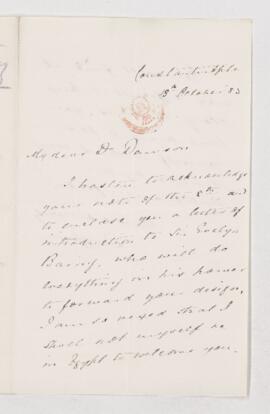 Constantinople
13th October 83
My dear Dr Dawson
I hasten to acknowledge
your note of the 8th, and
to enclose you a letter of
introduction to Sir Evelyn
Baring, who will do
everything in his power
to forward your designs.
I am so vexed that I
shall not myself be
in Egypt to welcome you.